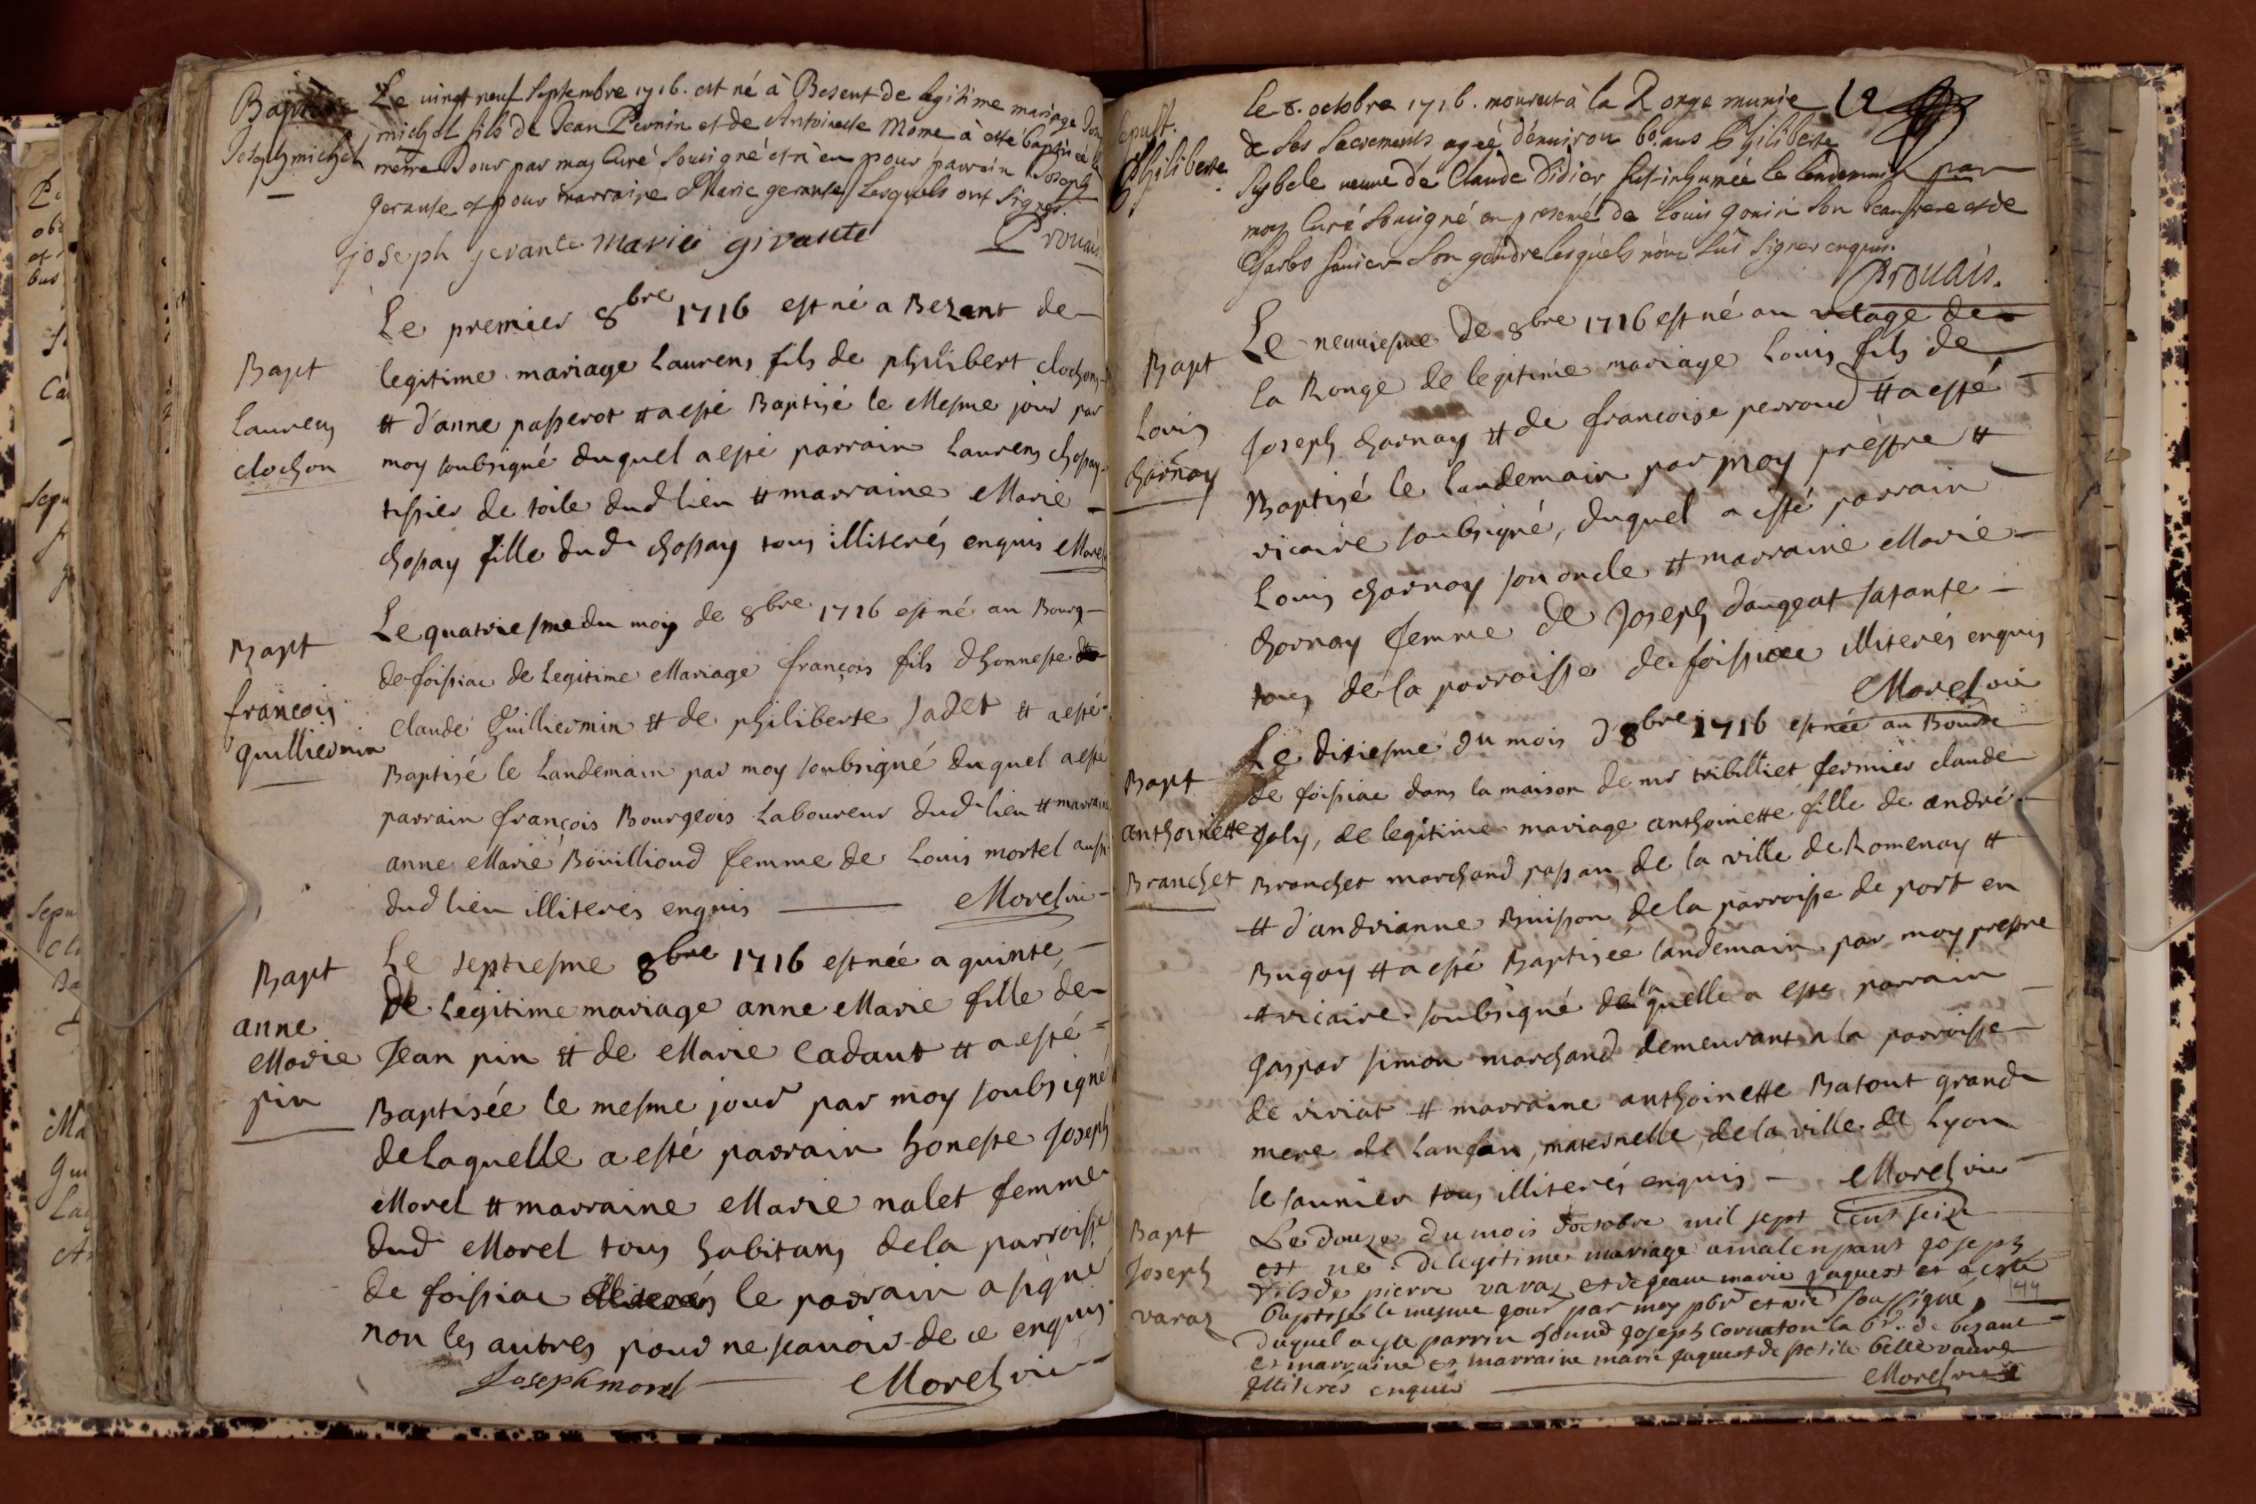 Baptesme
Joseph michel
Le vingt neuf Septembre 1716. est né à Besent de legitime mariage Joseph
michel fils de Jean Pernin et de Antoinette Mome à esté baptisé le
même Jour par moy Curé Sousigné et à eu pour parrain Joseph
gerante et pour marraine Marie gerante Lesquels ont Signés.
joseph gerante marie girante Prouais
Bapt
Laurens
clochon
Le premier 8bre 1716 est né a Bezant de
legitime mariage Laurens fils de philibert clochon
et d'anne passerot et a esté Baptizé le Mesme jour par
moy soubsigné duquel a esté parrain Laurens chossay
tissier de toile dud lieu et marraine Marie
chossay fille dud chossay tous illiterés enquis Morel
Bapt
françois
guilliermin
Le quatriesme du mois de 8bre 1716 est né au Bourg
de foissiac de Legitime Mariage françois fils d'honneste
Claude Guilliermin et de philiberte Jadet et a esté
Baptisé le Landemain par moy soubsigné duquel a esté
parrain françois Bourgeois Laboureur dud lieu et marraine
anne Marie Bouillioud femme de Louis mortel aussi
dud lieu illiterés enquis Morel vic
Bapt
anne
Marie
pin
Le septiesme 8bre 1716 est née a quinte
de Legitime mariage anne Marie fille de
Jean pin et de Marie Cadant et a esté
Baptisée le mesme jour par moy soubsigné
de Laquelle a esté parrain honeste Joseph
Morel et marraine Marie nalet femme
dud Morel tous habitans de la parroisse
de foissiac le parrain a signé
non les autres pour ne scavoir de ce enquis
Joseph morel Morel vic
Sepult.
Philiberte
le 8. octobre 1716. mourut à la Ronge munie
de Ses Sacrements agée d'environ 60 ans Philiberte
Sybele veuve de Claude Didier fut inhumée le lendemain par
moy Curé Sousigné en presence de Louis gonin Son beaufrere et de
Son gendre lesquels n'ont Sus Signer enquis.
Prouais.
Bapt
Louis
charnay
Le neuviesme de 8bre 1716 est né au vilage de
la Ronge de legitime mariage Louis fils de
Joseph charnay et de francoise perroud et a esté
Baptizé le landemain par moy prestre et
vicaire soubsigné, duquel a esté parrain
Louis charnay son oncle et marraine Marie
charnay femme de Joseph dangeat sa tante
tous de la parroisse de foissiac illiterés enquis
Morel vic
Bapt
anthoinette
Branchet
Le dixiesme du mois d 8bre 1716 est née au Bourg
de foissiac dans la maison de mr tribilliet fermier claude
Joly, de legitime mariage anthoinette fille de andré
Branchet marchand passan de la ville de Romenay et
et d'andrianne Buisson de la parroisse de port en
Bugay et a esté Baptisée landemain par moy prestre
et vicaire soubsigné de laquelle a esté parrain
gaspar simon marchand demeurant a la parroisse
de viriat et marraine anthoinette Batout grand
mere de Lanfan, maternelle, de la ville de Lyon
le saunier tous illiterés enquis Morel vic
Bapt
Joseph
varaz
Le douze du mois d'octobre mil sept cent seize
est né de legitime mariage a malenpant Joseph
fils de pierre varaz et de jeane marie jaquest et a esté
baptisé le mesme jour par moy pbr et vic soussigné
144
duquel a este parrin Joseph Cornaton la br. de bezant
et marraine et marraine marie jaquest de petite belle vavre
illiterés enquis Morel vic